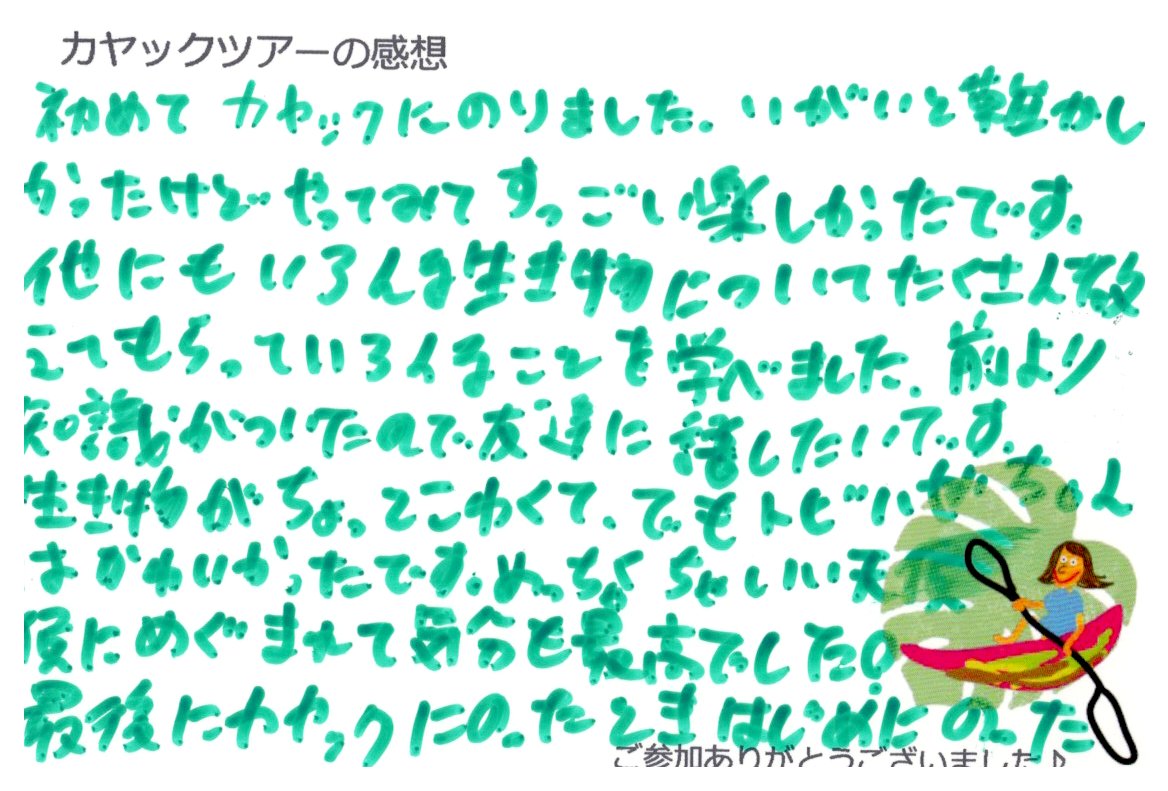 カヤックツアーの感想
初めてカヤックにのりました。いがいと難かし
かったけどやってみてすっごい楽しかったです。
他にもいろんな生き物についてたくさん教
えてもらっていろんなことを学べました。前より
知識がついたので友達に話したいです。
生き物がちょっとこわくて、でもトビハゼちゃん
はかわいかったです。めっちゃくちゃいい天
候にめぐまれて気分も最高でした!
最後にカヤックにのったときはじめにのった
ご参加ありがとうございました♪